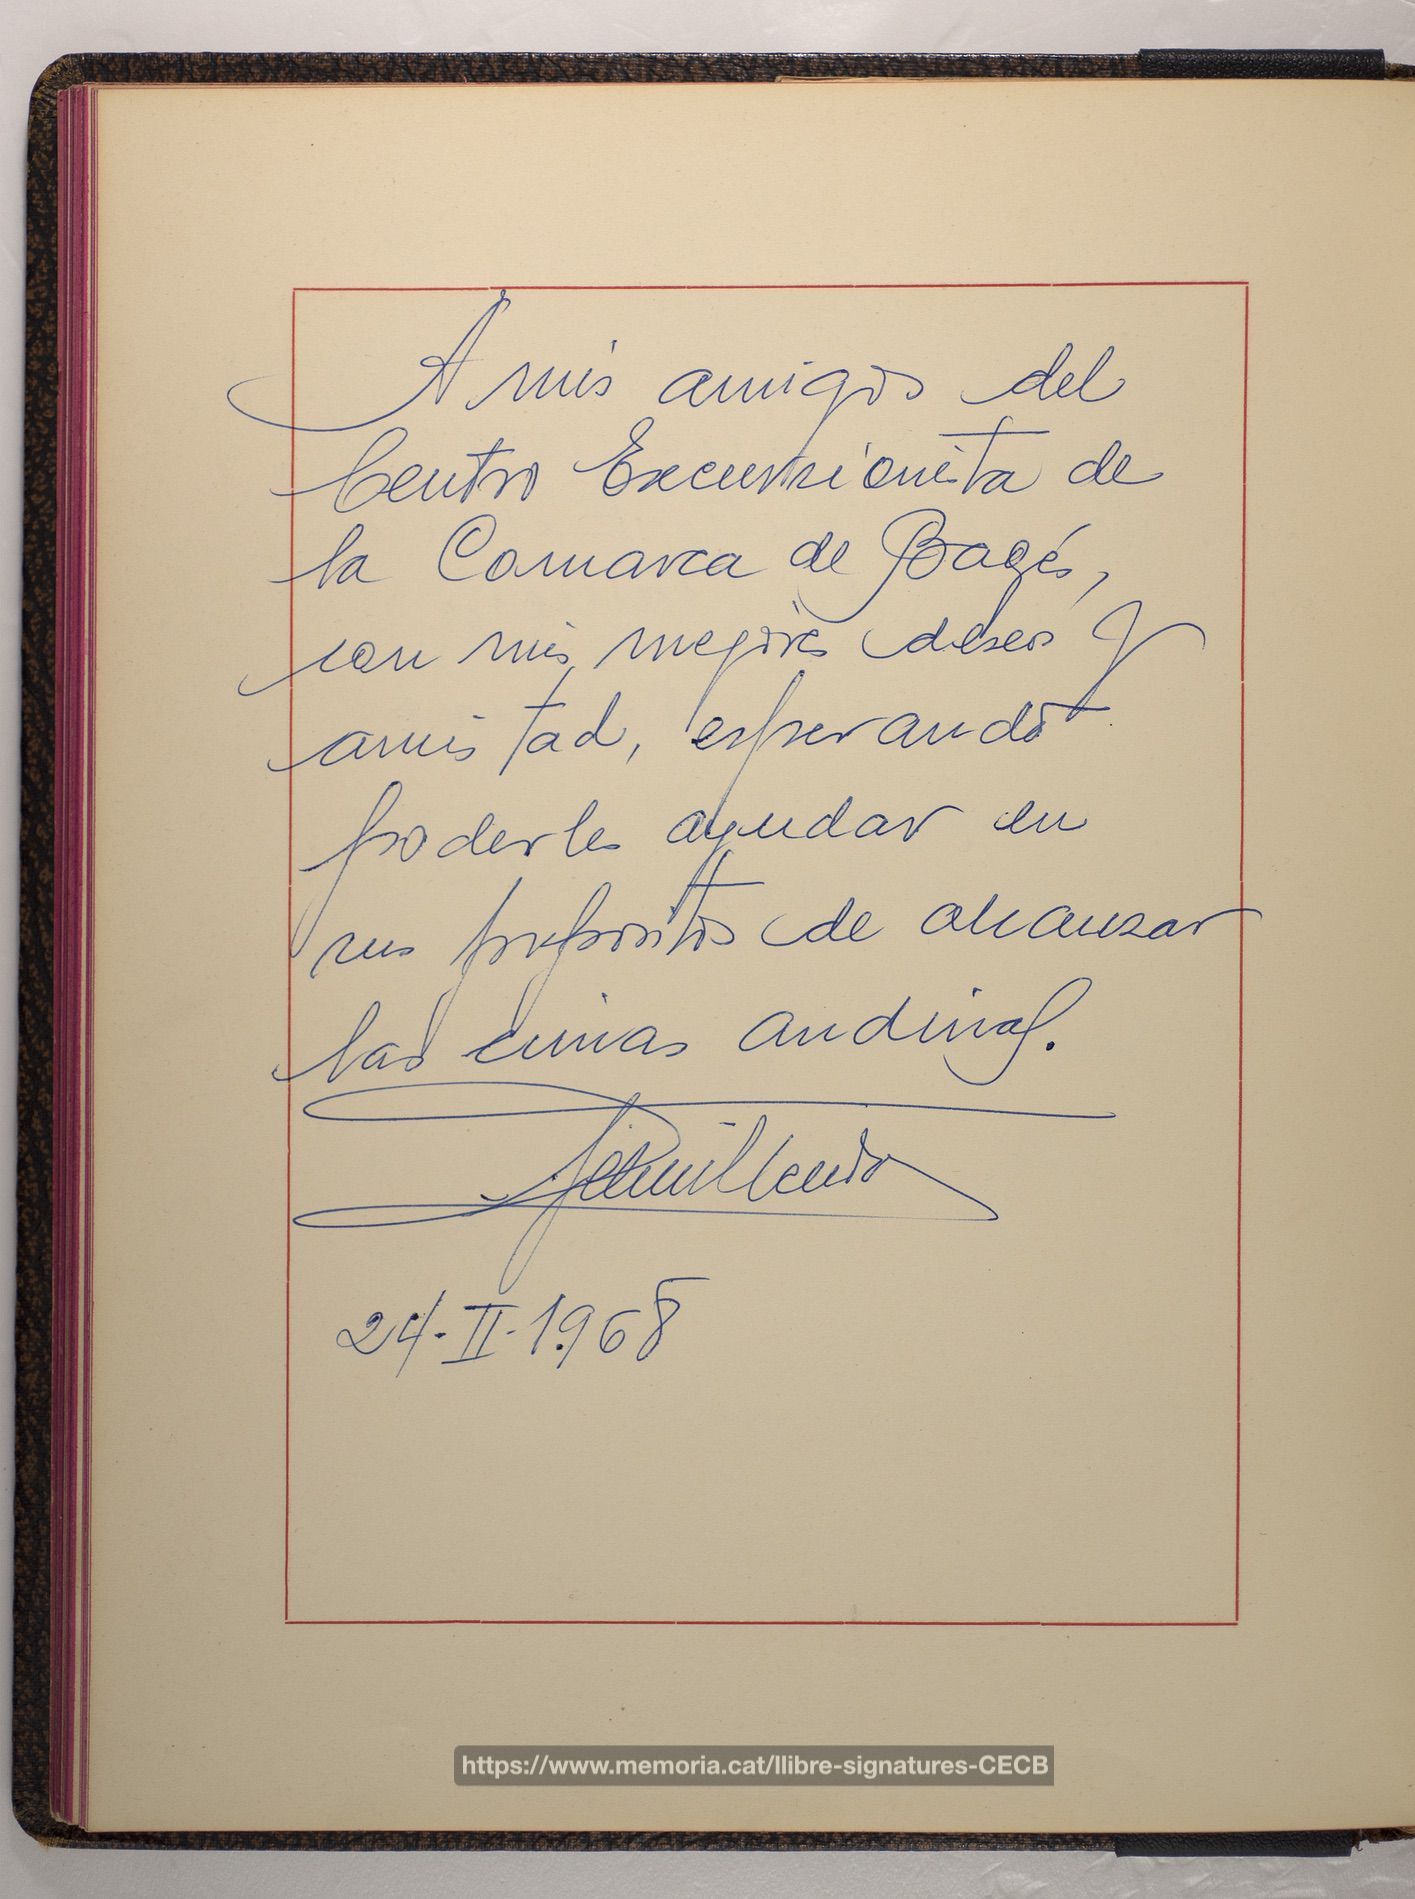 A mis amigos del
Centro Excursionista de
la Comarca de Bagés,
con mis mejores deseos y
amistad, esperando
poderles ayudar en
sus propositos de alcanzar
las cimas andinas.
24-II-1.968
https://www.memoria.cat/llibre-signatures-CECB